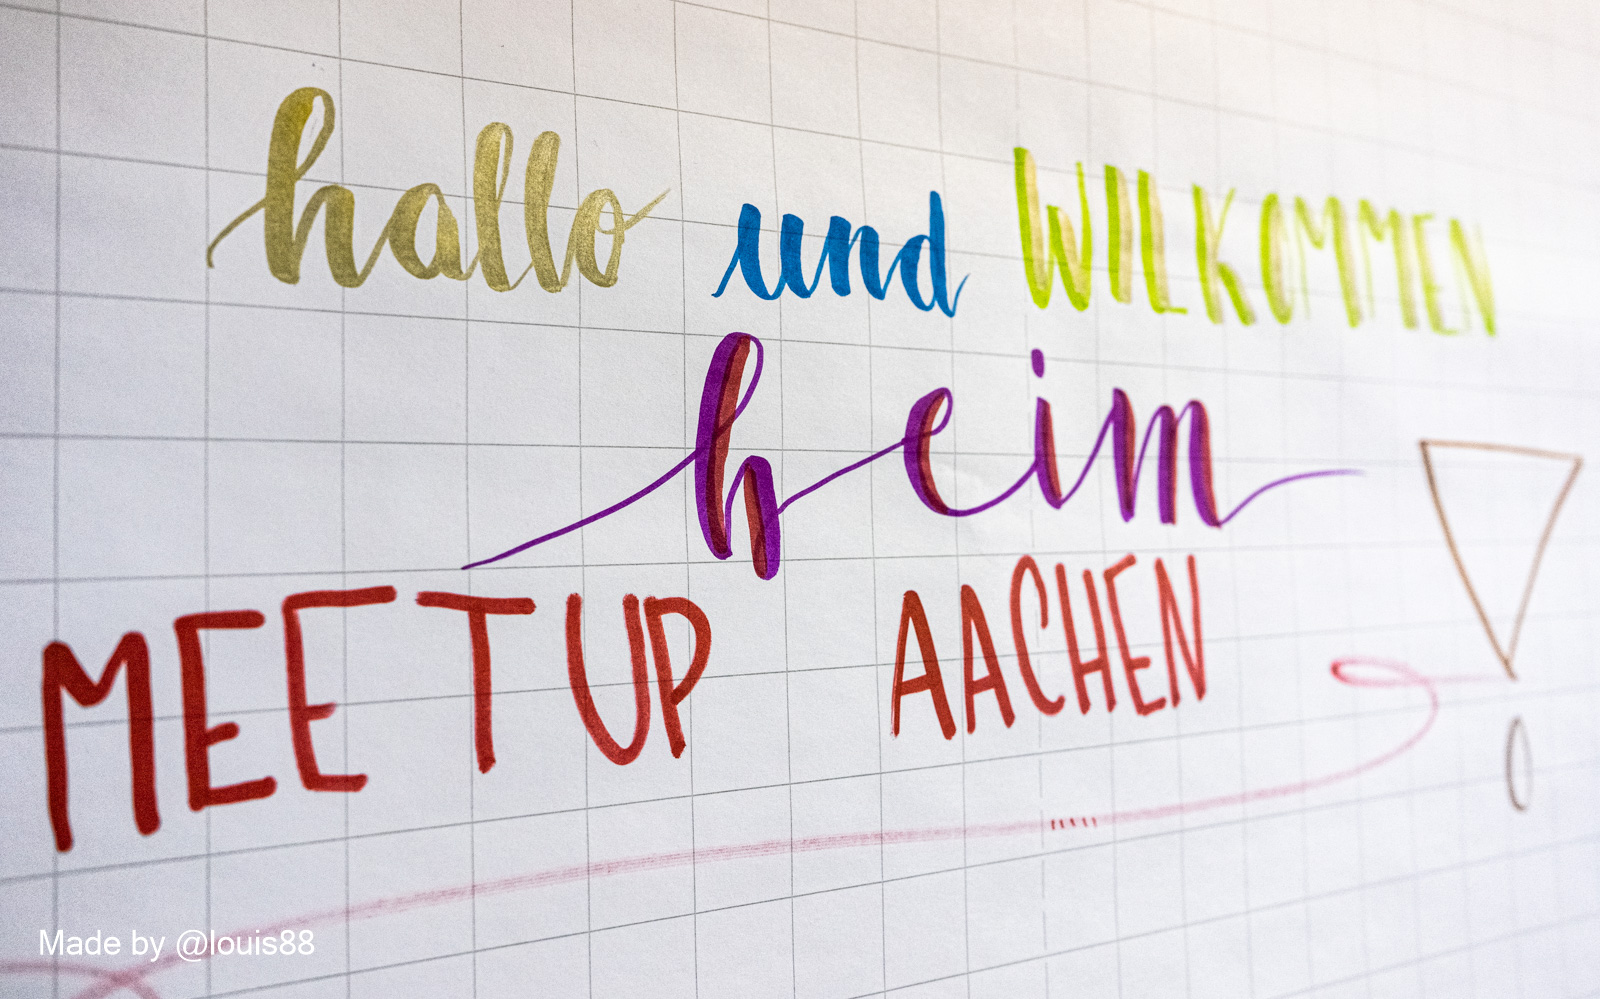 hallo und WILKOMMEN
heim
MEETUP AACHEN!
Made by @louis88